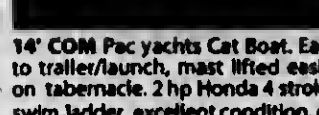 14' COM Pac yachts Cat Boat. Ea
to trailer/launch, mast lifted easi
on tabernacle. 2 hp Honda 4 strok
swim ladder, excellent condition,